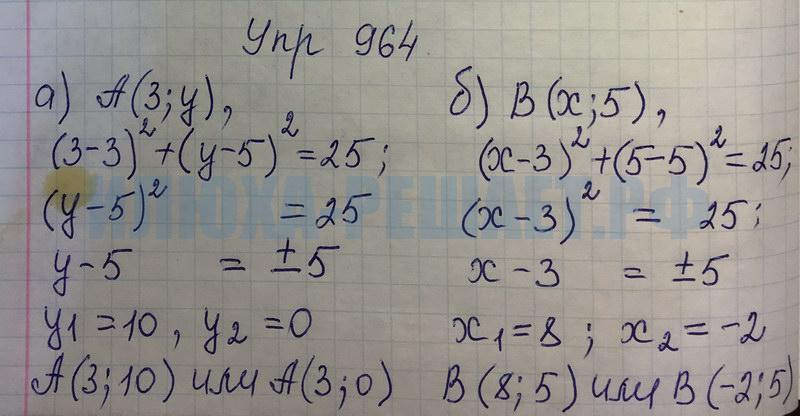 Упр 964.
а) A(3; y),
(3-3)²+(y-5)²=25;
(y-5)² =25
y-5 = ±5
y₁=10, y₂=0
A(3; 10) или A(3; 0)
б) B(x; 5),
(x-3)²+(5-5)²=25;
(x-3)² = 25;
x-3 = ±5
x₁=8; x₂=-2
B(8; 5) или B(-2; 5)
ИЛЮХА-РЕШАЕТ.РФ